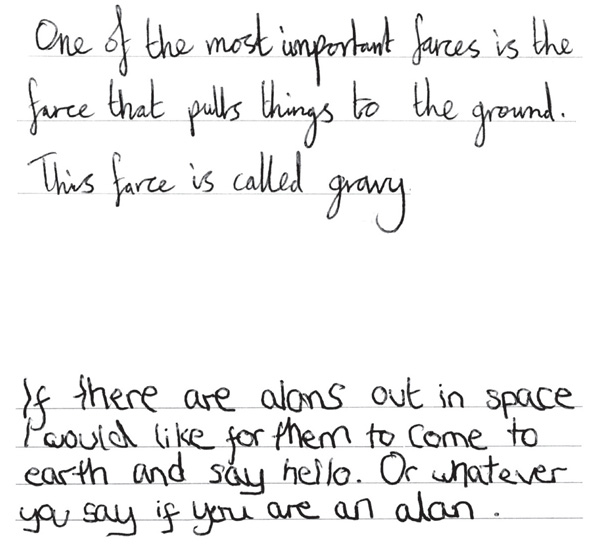 One of the most important farces is the
farce that pulls things to the ground.
This farce is called gravy
If there are alans out in space
I would like for them to come to
earth and say hello. Or whatever
you say if you are an alan.